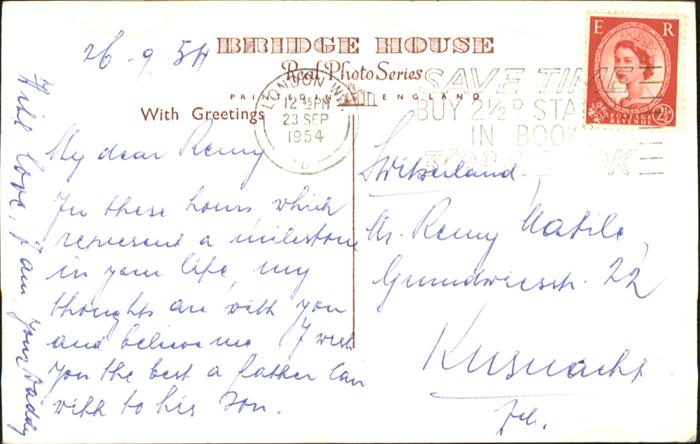 26.9.54
BRIDGE HOUSE
Real Photo Series
PRINTED IN ENGLAND
With Greetings
LONDON W.1
12 PM
23 SEP
1954
SAVE TIME
BUY 2½D STA
IN BOOK
E R
POSTAGE REVENUE
2½D
My dear Remy
In these hours which
represent a milestone
in your life, my
thoughts are with you
and believe me I wish
you the best a father can
wish to his son.
With love, I am your Daddy
Switzerland,
Mr. Remy Matile,
22
Kusnacht
Zch.